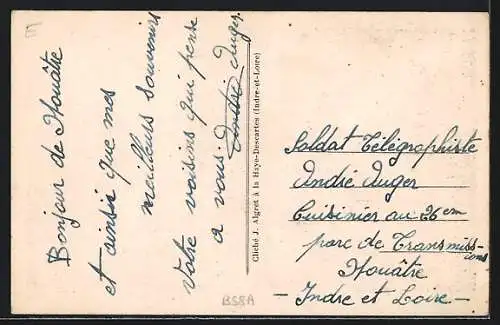 Bonjour de Nouâtre
et ainsi que mes
meilleurs souvenirs
votre voisins qui pense
a vous André Auger
Cliché J. Algret à la Haye-Descartes (Indre-et-Loire)
Soldat Télégraphiste
André Auger
Cuisinier au 26em
parc de Transmissions
Nouâtre
- Indre et Loire -
BS8A